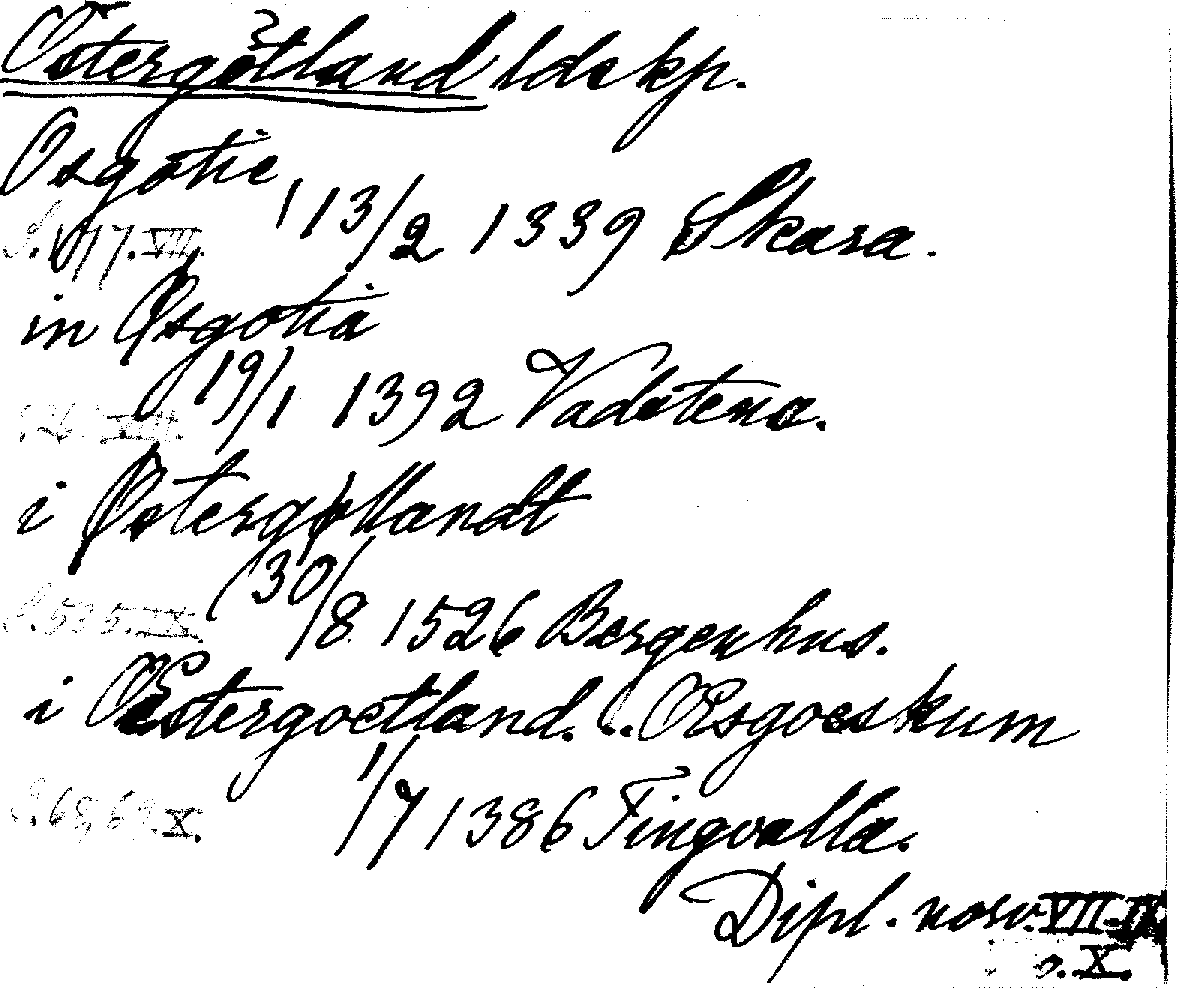 Östergötland ldskp.
Osgotie
S. 117. VII. 13/2 1339 Skara.
in Øsgotia
19/1 1392 Vadstena.
i Østergøtlandt
S. 535. IX. 30/8 1526 Bergenhus.
i Œstergoetland. .. Œsgoeskum
S. 68, 69. X. 1/7 1386 Tingvalla.
Dipl. norv. VII-IX
o. X.